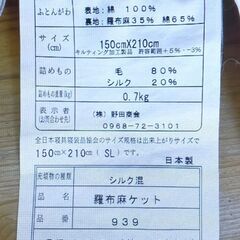 ふとんがわ
表地：綿 100%
裏地：羅布麻35% 綿65%
サイズ
(cm)
150cmX210cm
キルティング加工製品 許容範囲+5%・-3%
詰めもの
毛 80%
シルク 20%
詰めもの重量(kg)
0.7kg
表示者
(お問合わせ先)
(株) 野田東舎
0968-72-3101
全日本寝具寝装品協会のサイズ規格は出来上がりサイズで
150cm×210cm(SL)です。
日本製
充填物の種類
シルク混
羅布麻ケット
939